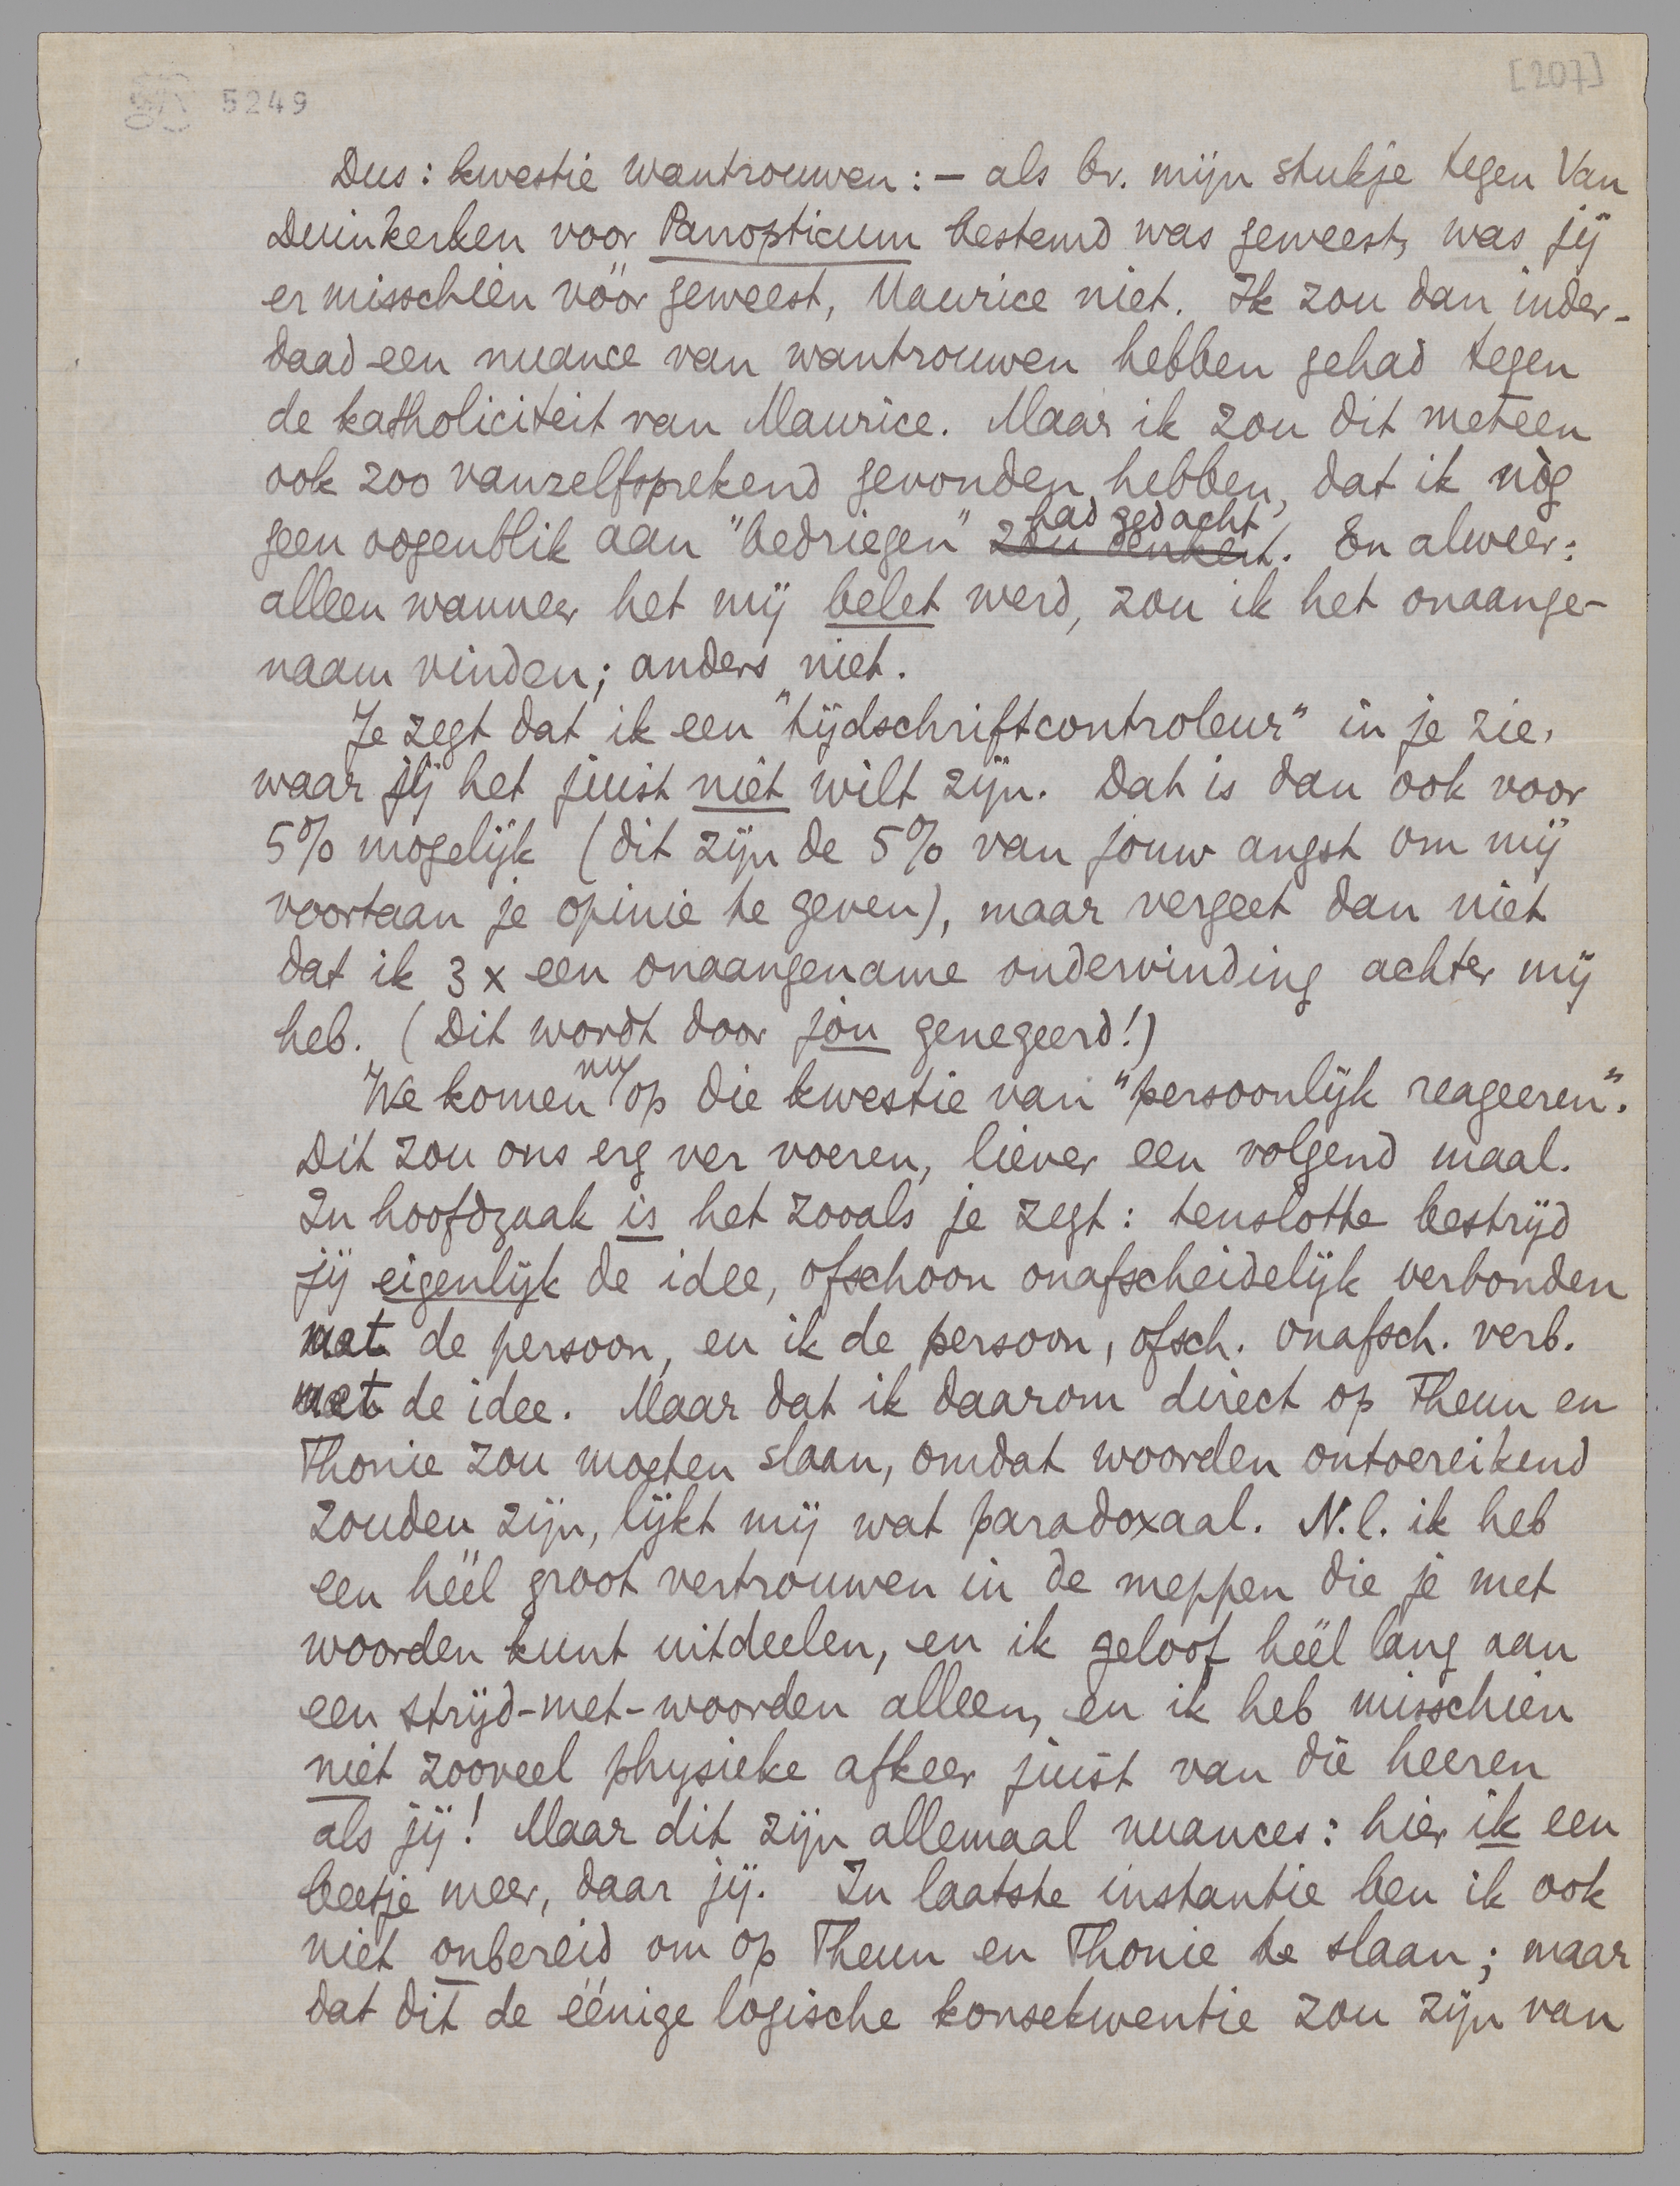 5249
[207]
Dus: kwestie wantrouwen: — als bv. mijn stukje tegen Van
Duinkerken voor Panopticum bestemd was geweest, was jij
er misschien vóór geweest, Maurice niet. Ik zou dan inder-
daad een nuance van wantrouwen hebben gehad tegen
de katholiciteit van Maurice. Maar ik zou dit meteen
ook zoo vanzelfsprekend gevonden hebben, dat ik nòg
had gedacht
geen oogenblik aan "bedriegen" zou denken. En alweer:
alleen wanneer het mij belet werd, zou ik het onaange-
naam vinden; anders niet.
Je zegt dat ik een "tijdschriftcontroleur" in je zie,
waar jij het juist niet wilt zijn. Dat is dan ook voor
5% mogelijk (dit zijn de 5% van jouw angst om mij
voortaan je opinie te geven), maar vergeet dan niet
dat ik 3 x een onaangename ondervinding achter mij
heb. (Dit wordt door jou genegeerd!)
nu
We komen op die kwestie van "persoonlijk reageeren".
Dit zou ons erg ver voeren, liever een volgend maal.
In hoofdzaak is het zooals je zegt: tenslotte bestrijd
jij eigenlijk de idee, ofschoon onafscheidelijk verbonden
met de persoon, en ik de persoon, ofsch. onafsch. verb.
met de idee. Maar dat ik daarom direct op Theun en
Thonie zou moeten slaan, omdat woorden ontoereikend
zouden zijn, lijkt mij wat paradoxaal. N.l. ik heb
een héél groot vertrouwen in de meppen die je met
woorden kunt uitdeelen, en ik geloof héél lang aan
een strijd-met-woorden alleen, en ik heb misschien
niet zooveel physieke afkeer juist van die heeren
als jij! Maar dit zijn allemaal nuances: hier ik een
beetje meer, daar jij. In laatste instantie ben ik ook
niet onbereid om op Theun en Thonie te slaan; maar
dat dit de éénige logische konsekwentie zou zijn van